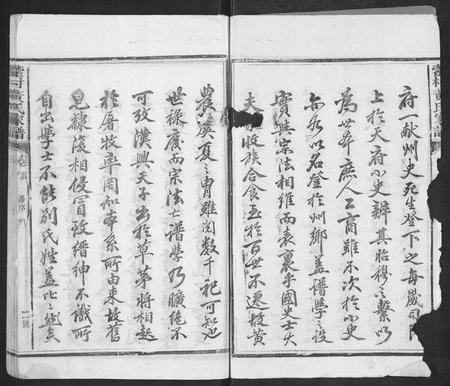 府一献州史死生登下之每歲司
上於天府小史辨其昭穆之繫以
為世本庶人工商雖不次於小史
亦各以名登於州鄉蓋譜學之設
實與宗法相維而表裏乎國史士大
夫收族合食至於百世不遷故黃
農虞夏之胄雖閱數千祀可知也
世祿廢而宗法亡譜學乃曠絕不
可攷漢興天子出於草茅將相起
於屠牧率罔知本系所由来故舊
皂隸後相侵冒攷縉紳不識所
自出學士不能別氏姓蓋比矣
村黃氏家譜
卷五
序